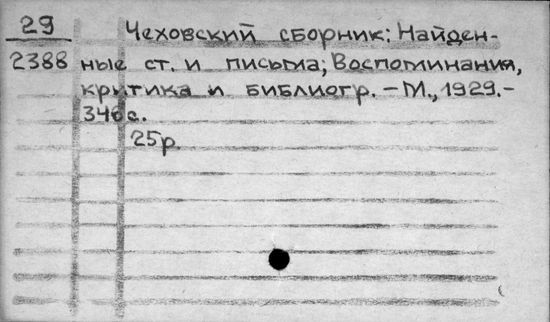 29 Чеховский сборник: Найден-
2388 ные ст. и письма; Воспоминания,
критика и библиогр. – М., 1929. –
346с.
25р.